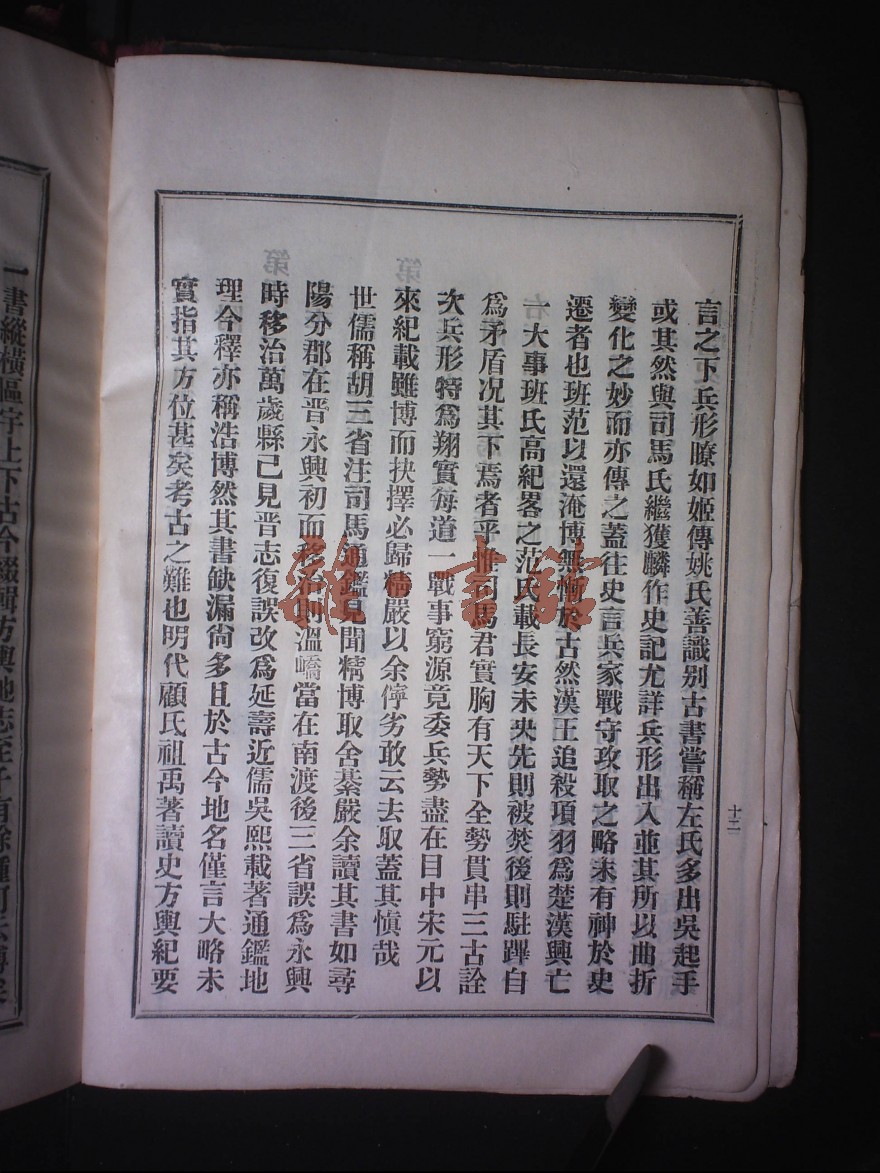 言之下兵形瞭如姬傳姚氏善識別古書嘗稱左氏多出吳起手
或其然與司馬氏繼獲麟作史記尤詳兵形出入並其所以曲折
變化之妙而亦傳之蓋往史言兵家戰守攻取之略未有神於史
遷者也班范以還淹博無慚於古然漢王追殺項羽爲楚漢興亡
一大事班氏高紀畧之范氏載長安未央先則被焚後則駐蹕自
爲矛盾況其下焉者乎惟司馬君實胸有天下全勢貫串三古詮
次兵形特爲翔實每道一戰事窮源竟委兵勢盡在目中宋元以
來紀載雖博而抉擇必歸精嚴以余儜劣敢云去取蓋其愼哉
世儒稱胡三省注司馬通鑑見聞精博取舍綦嚴余讀其書如尋
陽分郡在晋永興初而移治則溫嶠當在南渡後三省誤爲永興
時移治萬歲縣已見晋志復誤改爲延壽近儒吳熙載著通鑑地
理今釋亦稱浩博然其書缺漏尙多且於古今地名僅言大略未
實指其方位甚矣考古之難也明代顧氏祖禹著讀史方輿紀要
十二
一書縱橫區宇上下古今綴輯方輿地志至千有餘種可云博